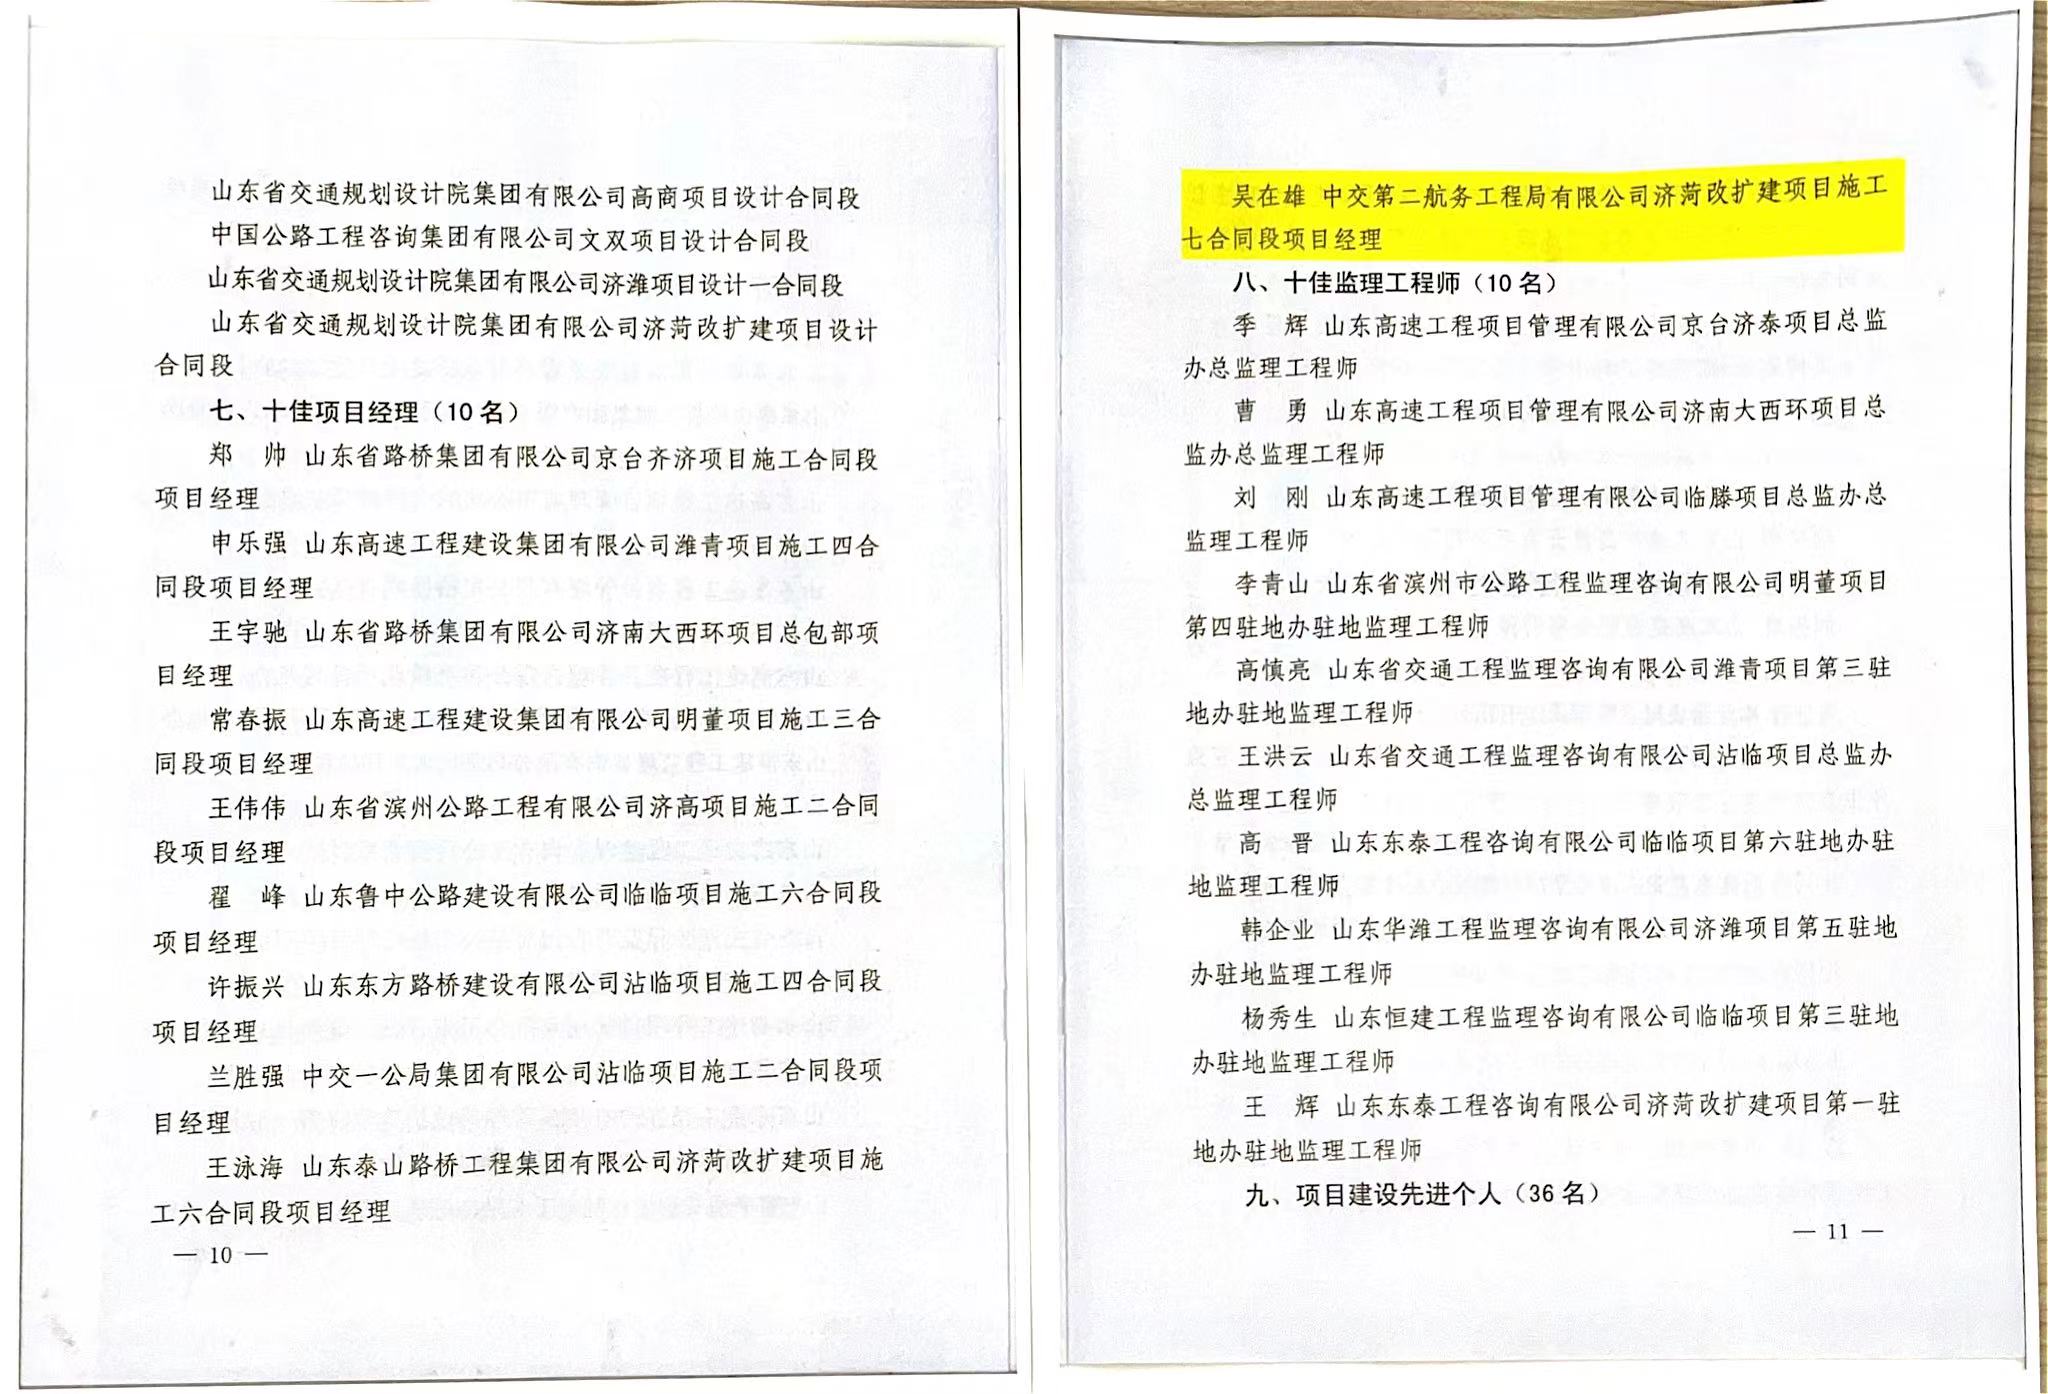 山东省交通规划设计院集团有限公司高商项目设计合同段
中国公路工程咨询集团有限公司文双项目设计合同段
山东省交通规划设计院集团有限公司济潍项目设计一合同段
山东省交通规划设计院集团有限公司济菏改扩建项目设计
合同段
七、十佳项目经理（10 名）
郑　帅 山东省路桥集团有限公司京台齐济项目施工合同段
项目经理
申乐强 山东高速工程建设集团有限公司潍青项目施工四合
同段项目经理
王宇驰 山东省路桥集团有限公司济南大西环项目总包部项
目经理
常春振 山东高速工程建设集团有限公司明董项目施工三合
同段项目经理
王伟伟 山东省滨州公路工程有限公司济高项目施工二合同
段项目经理
翟　峰 山东鲁中公路建设有限公司临临项目施工六合同段
项目经理
许振兴 山东东方路桥建设有限公司沾临项目施工四合同段
项目经理
兰胜强 中交一公局集团有限公司沾临项目施工二合同段项
目经理
王泳海 山东泰山路桥工程集团有限公司济菏改扩建项目施
工六合同段项目经理
— 10 —
吴在雄 中交第二航务工程局有限公司济菏改扩建项目施工
七合同段项目经理
八、十佳监理工程师（10 名）
季　辉 山东高速工程项目管理有限公司京台济泰项目总监
办总监理工程师
曹　勇 山东高速工程项目管理有限公司济南大西环项目总
监办总监理工程师
刘　刚 山东高速工程项目管理有限公司临滕项目总监办总
监理工程师
李青山 山东省滨州市公路工程监理咨询有限公司明董项目
第四驻地办驻地监理工程师
高慎亮 山东省交通工程监理咨询有限公司潍青项目第三驻
地办驻地监理工程师
王洪云 山东省交通工程监理咨询有限公司沾临项目总监办
总监理工程师
高　晋 山东东泰工程咨询有限公司临临项目第六驻地办驻
地监理工程师
韩企业 山东华潍工程监理咨询有限公司济潍项目第五驻地
办驻地监理工程师
杨秀生 山东恒建工程监理咨询有限公司临临项目第三驻地
办驻地监理工程师
王　辉 山东东泰工程咨询有限公司济菏改扩建项目第一驻
地办驻地监理工程师
九、项目建设先进个人（36 名）
— 11 —